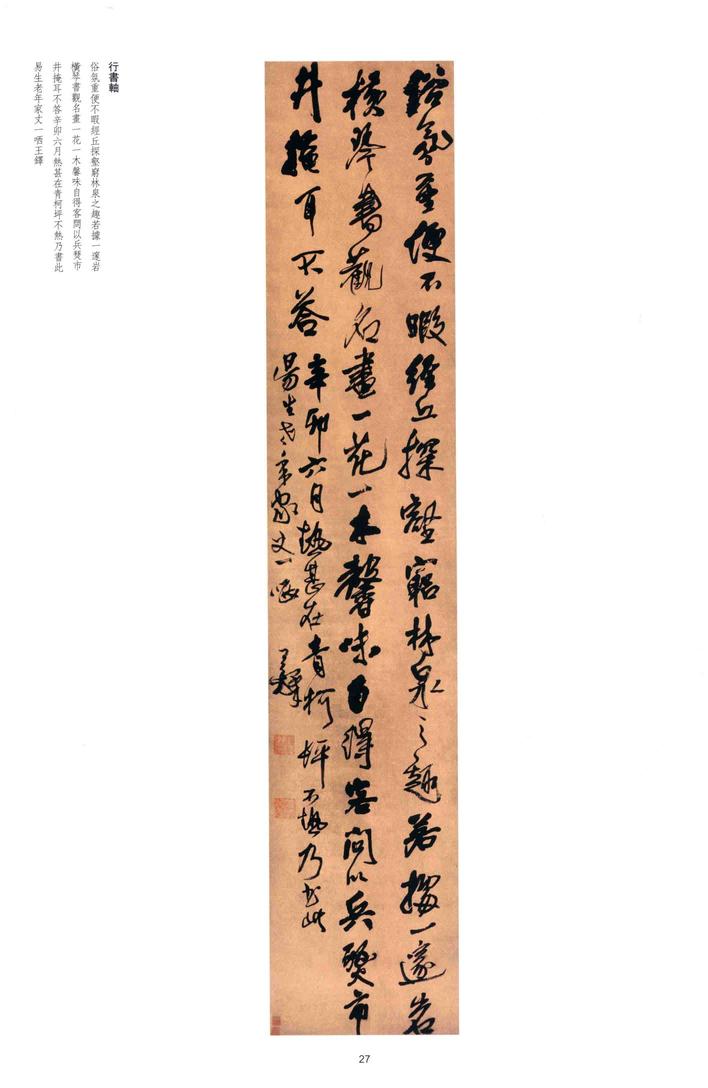 行書軸
俗氛重便不暇經丘探壑窮林泉之趣若據一邃岩
橫琴書觀名畫一花一木馨味自得客問以兵燹市
井掩耳不答辛卯六月熱甚在青柯坪不熱乃書此
易生老年家丈一哂王鐸
俗氛重便不暇經丘探壑窮林泉之趣若據一邃岩
橫琴書觀名畫一花一木馨味自得客問以兵燹市
井掩耳不答
辛卯六月熱甚在青柯坪不熱乃書此
易生老年家丈一哂
王鐸
27